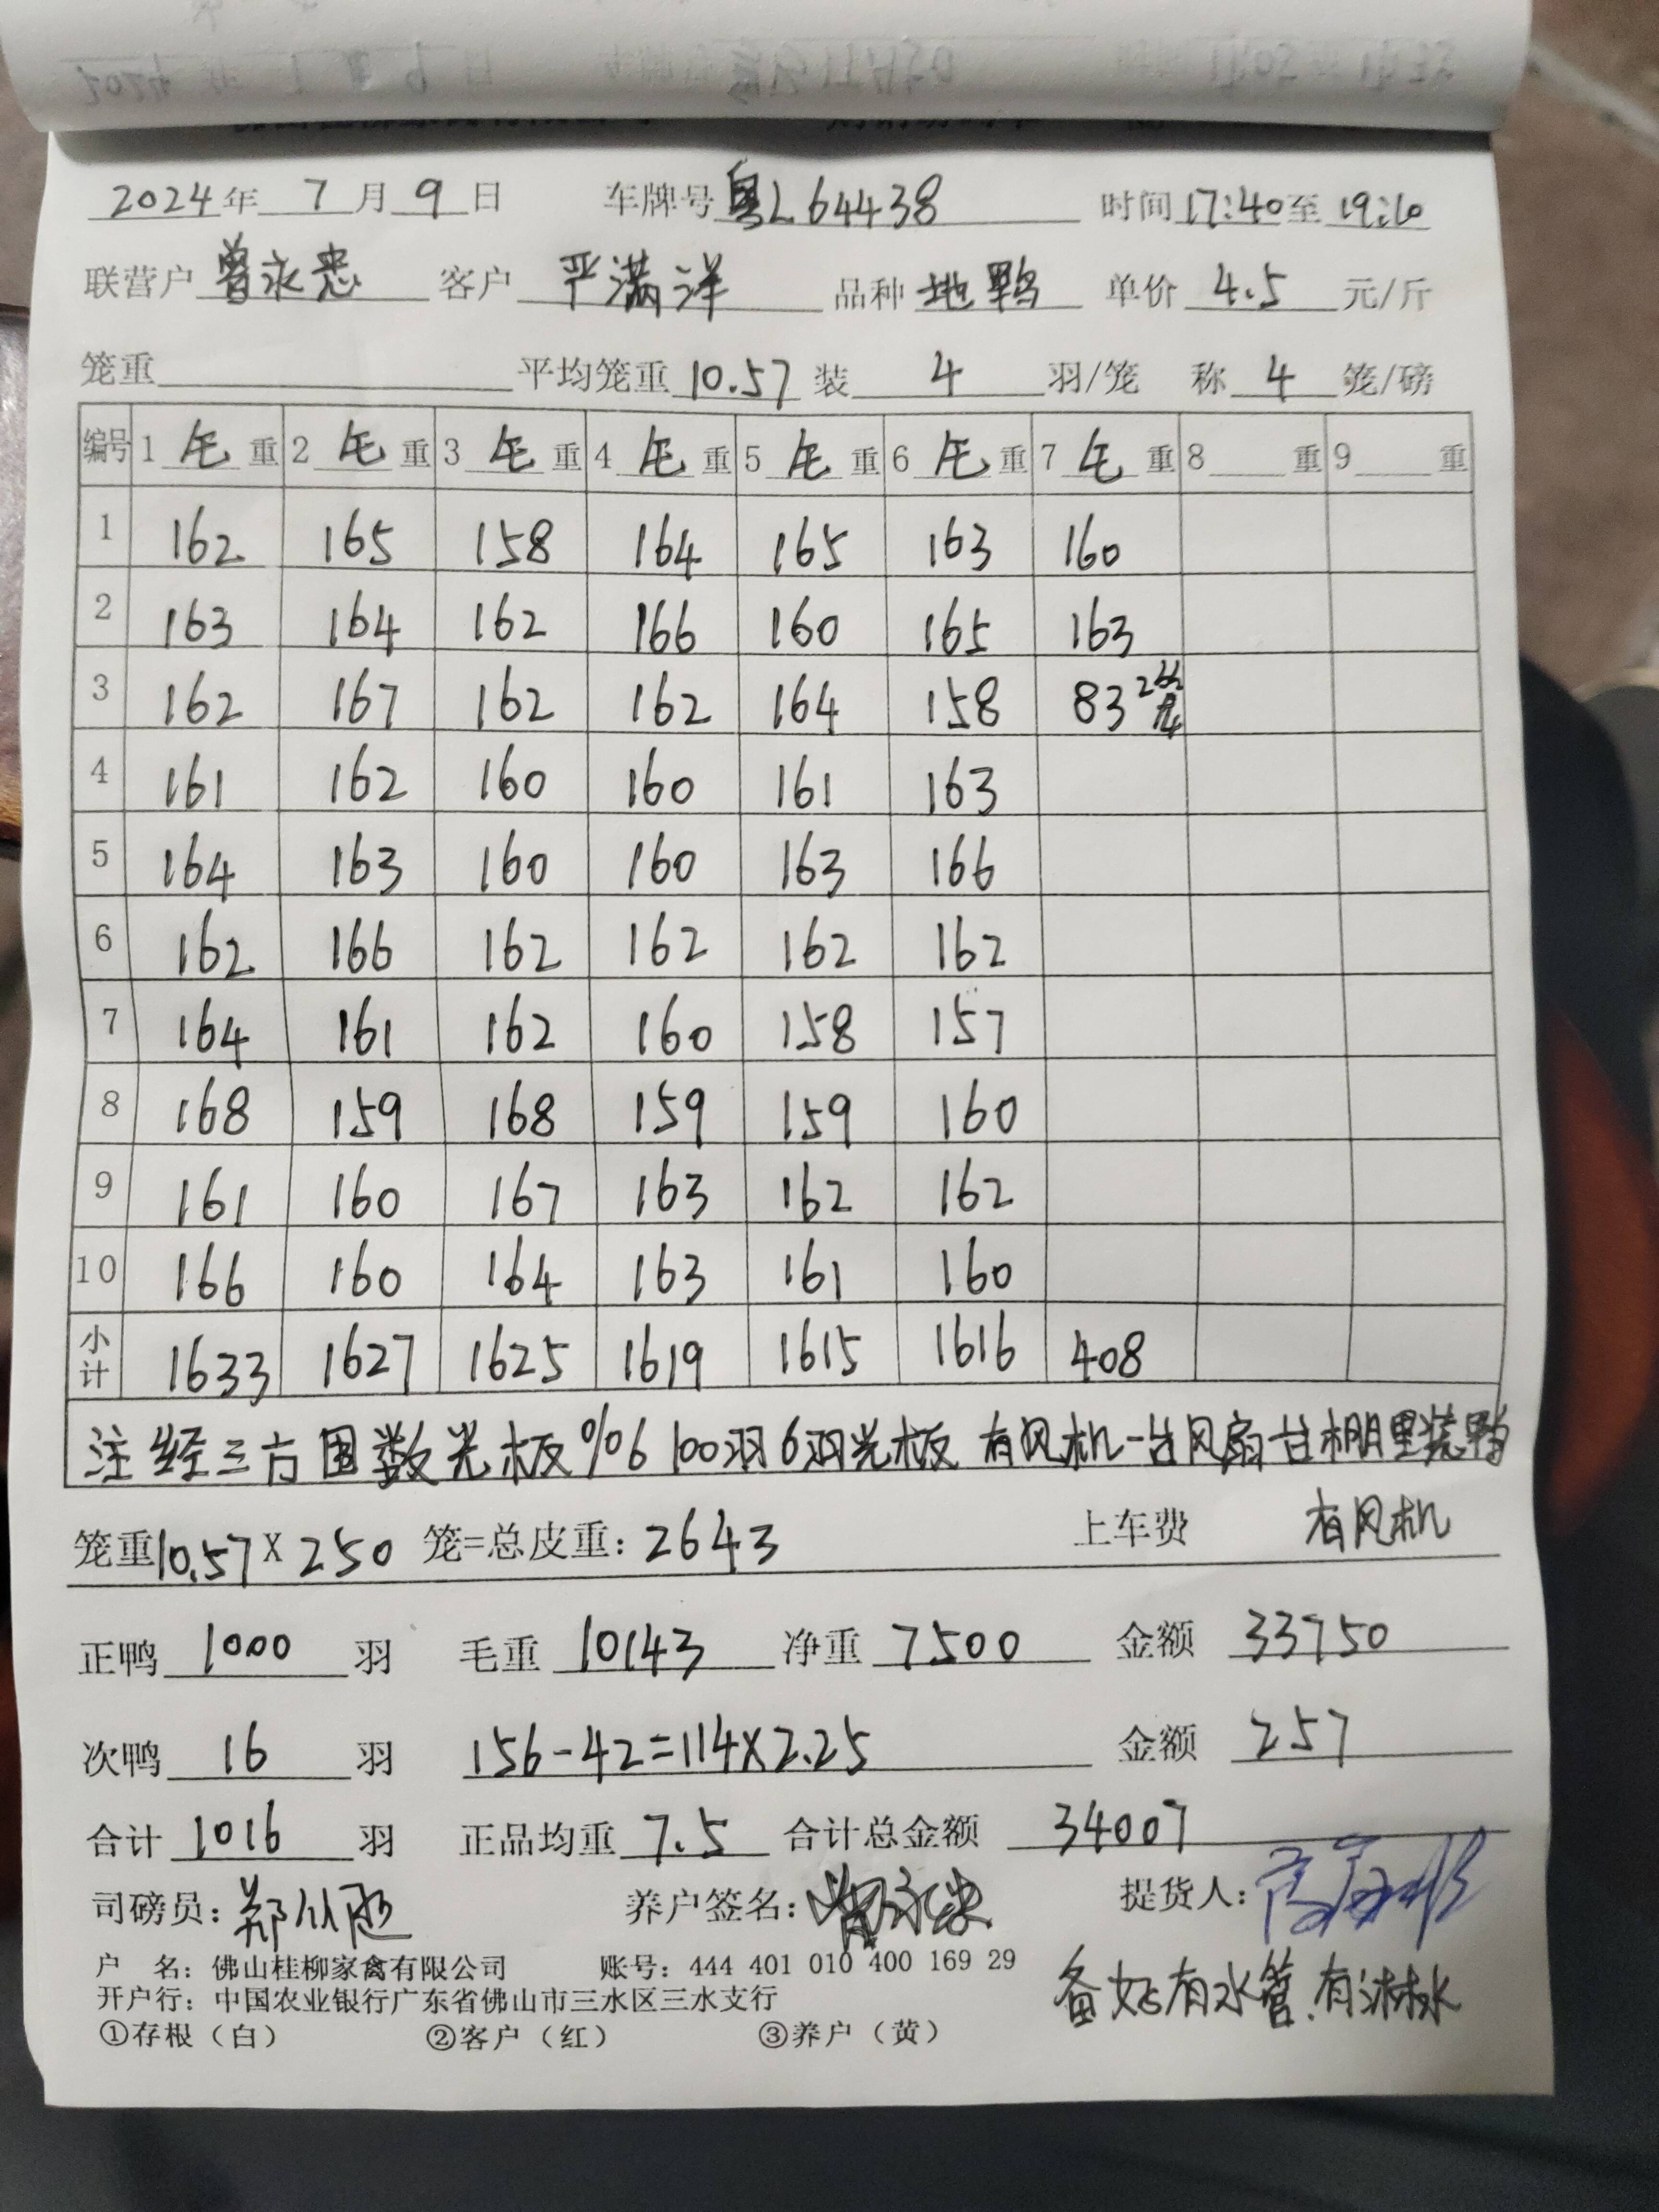 2024年 7 月 9 日 车牌号 粤L64438 时间 17:40 至 19:10
联营户 曾永忠 客户 严满洋 品种 地鸭 单价 4.5 元/斤
笼重 平均笼重 10.57 装 4 羽/笼 称 4 笼/磅
编号 1 毛 重 2 毛 重 3 毛 重 4 毛 重 5 毛 重 6 毛 重 7 毛 重 8 重 9 重
1 162 165 158 164 165 163 160
2 163 164 162 166 160 165 163
3 162 167 162 162 164 158 83
4 161 162 160 160 161 163
5 164 163 160 160 163 166
6 162 166 162 162 162 162
7 164 161 162 160 158 157
8 168 159 168 159 159 160
9 161 160 167 163 162 162
10 166 160 164 163 161 160
小计 1633 1627 1625 1619 1615 1616 408
注 经三方围数光板%6 100羽6羽光板 有风机一台风扇一台棚里装鸭
笼重10.57 X 250 笼=总皮重: 2643 上车费 有风机
正鸭 1000 羽 毛重 10143 净重 7500 金额 33750
次鸭 16 羽 156-42=114X2.25 金额 257
合计 1016 羽 正品均重 7.5 合计总金额 34007
司磅员: 养户签名: 曾永忠 提货人:
户 名: 佛山桂柳家禽有限公司 账号: 444 401 010 400 169 29
开户行: 中国农业银行广东省佛山市三水区三水支行
①存根（白） ②客户（红） ③养户（黄）
备好有水管.有淋水